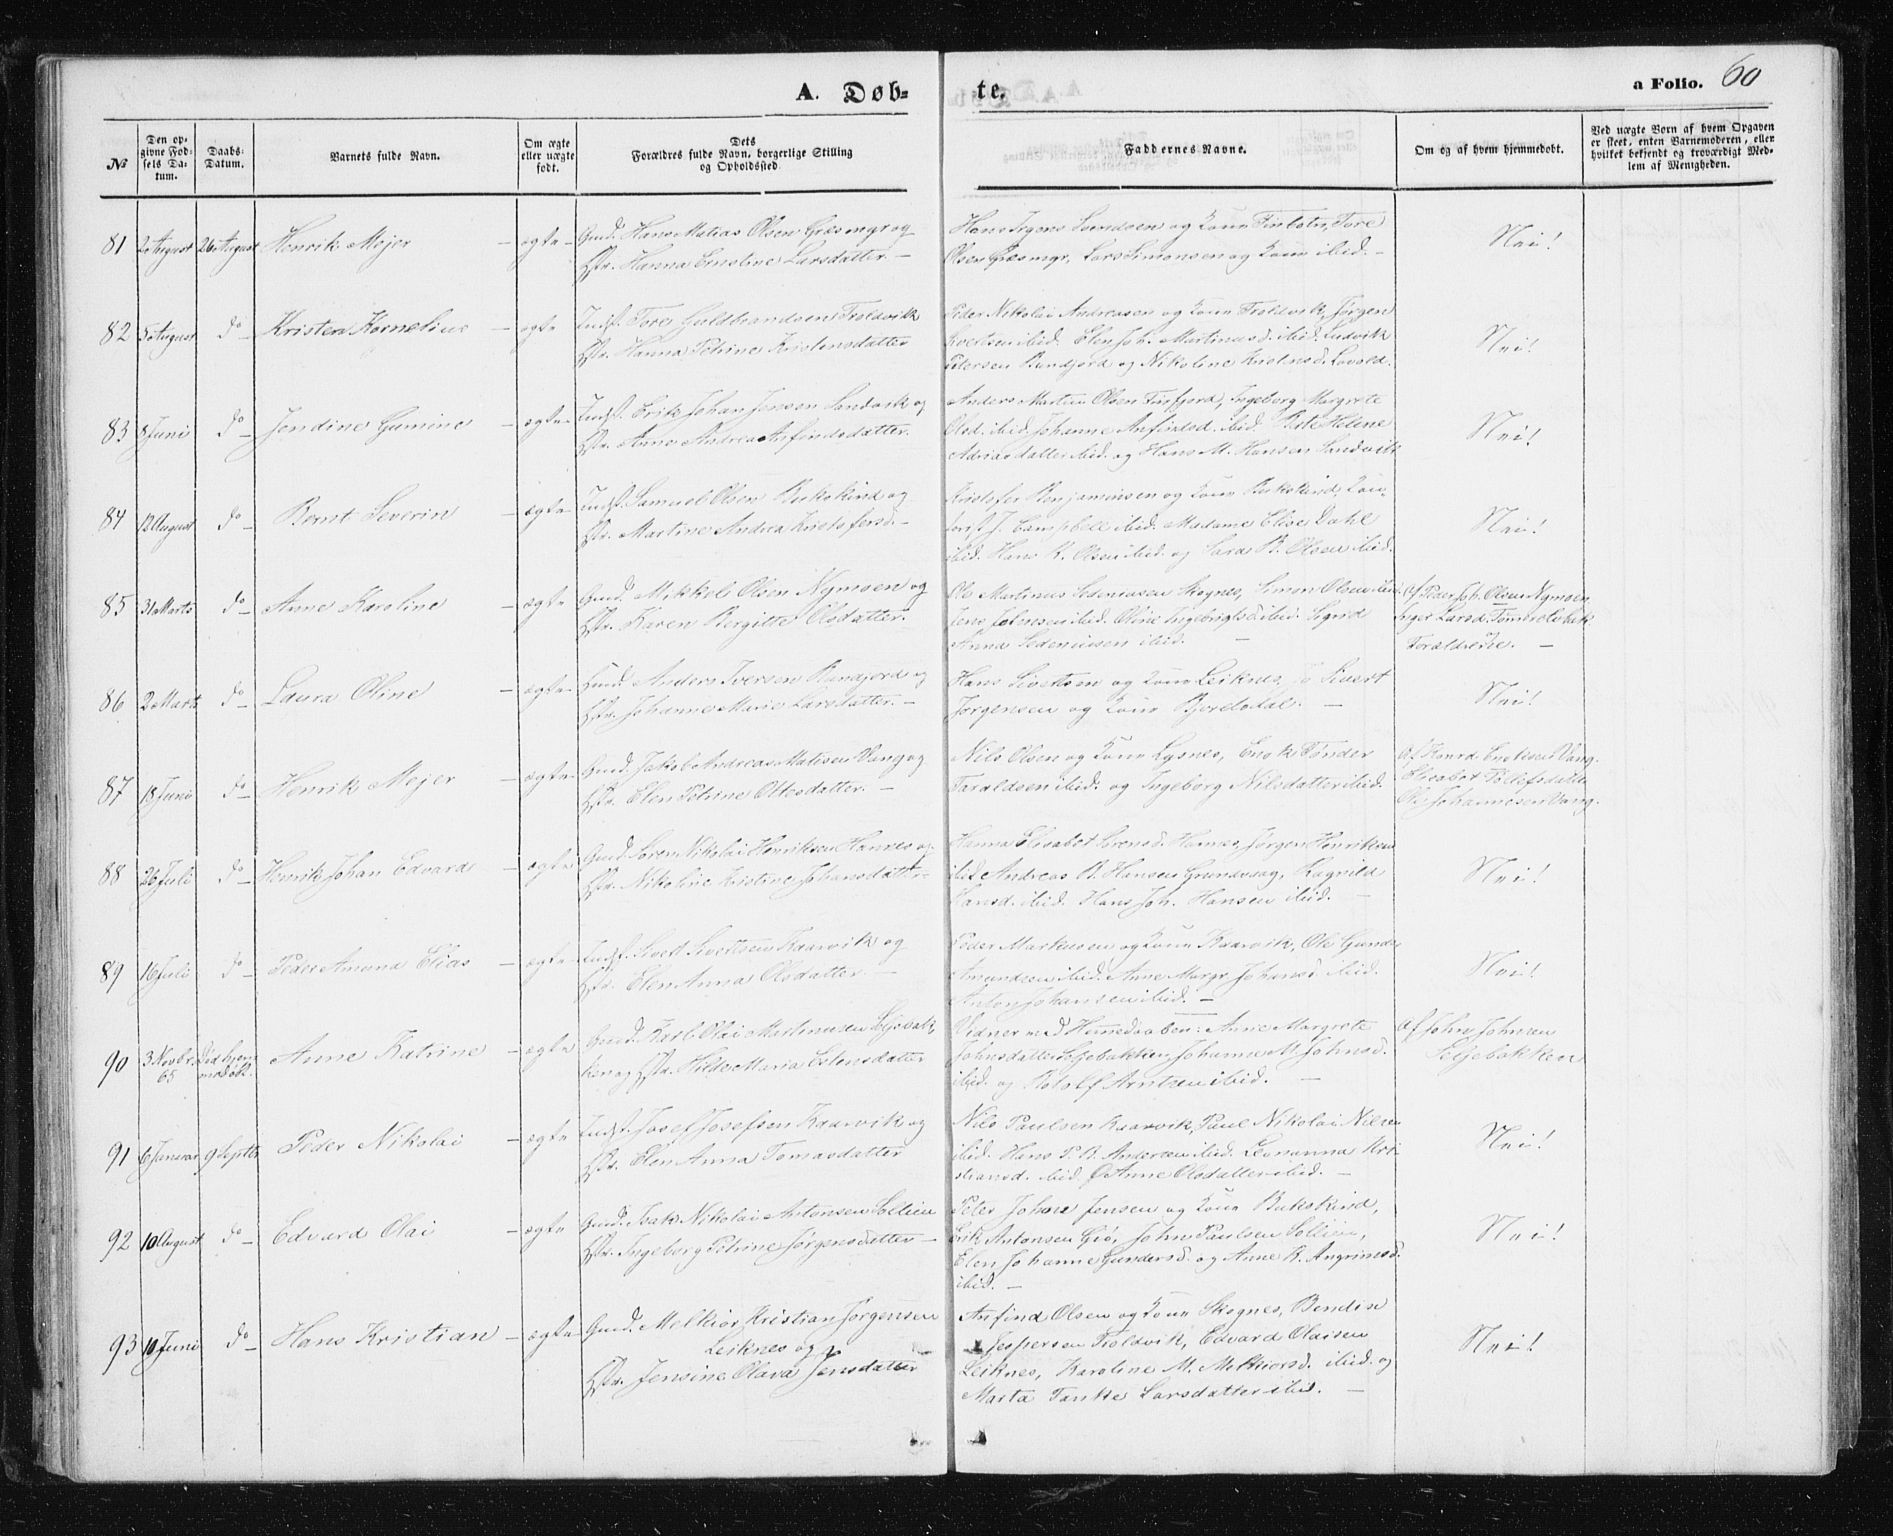 A. Døb= te. a Folio. 60
№ Den op=givne Fød=sels Da=tum. Daabs=Datum. Barnets fulde Navn. Om ægte eller uægte født. Dets Forældres fulde Navn, borgerlige Stilling og Opholdssted. Faddernes Navne. Om og af hvem hjemmedøbt. Ved uægte Børn af hvem Opgaven er skeet, enten Barnemoderen, eller hvilket bekjendt og troværdigt Medlem af Menigheden.
81 2 August 26 August Henrik Mejer – ægte – Gmd. Hans Matias Olsen Græsmyr og
Hstr. Hanna Ernstine Larsdatter. –
Hans Svendsen og Kone Finbotn, Tore
Olsen Græsmyr, Lars Simonsen og Kone ibid. –
Nei!
82 5 August do Kristen Kornelius – ægte – Indst. Tore Guldbrandsen Troldvik
Hstr. Hanna Petrine Kristensdatter
Peder Nikolai Andreasen og Kone Troldvik, Jørgen
Evertsen ibid. Elen Joh. Martinusd. ibid. Ludvik
Petersen og Nikoline Kristensd. Lovold.
Nei!
83 8 Juni do – Jendine Gumine – ægte – Indst. Erik Johan Jensen Sandvik og
Hstr. Anne Andrea Anfindsdatter.
Anders Martin Olsen Finfjord, Ingeborg Margrete
Olsd. ibid. Johanne Anfindsd. ibid. Helene
Adriasdatter ibid. og Hans M. Hansen Sandvik
Nei!
84 12 August do – Bernt Severin – ægte – Indst. Samuel Olsen Bukskind og
Hstr. Martine Andrea Kristofersd. –
Kristofer Benjaminsen og Kone Bukskind,
J. Campbell ibid. Madame Elise Dahl
ibid. Hans K. Olsen ibid. og Sara B. Olsen ibid.
Nei!
85 31 Marts do – Anne Karoline – ægte Gmd. Mikkel Olsen Nymoen og
Hstr. Karen Bergitte Olsdatter.
Ole Martinus Sedeniusen Skognes, Simon Olsen ibid.
Jens Jensen ibid. Oline Ingebrigtsd. ibid. Sigrid
Anna Sedeniusen ibid. –
Af Peder Joh. Olsen Nymoen
Larsd. Tømmerelvbak
Forældrene. –
86 2 Marts do – Laura Oline – ægte – Gmd. Anders Iversen og
Hstr. Johanne Marie Larsdatter. –
Hans Sivertsen og Kone Leiknes, Sivert
Jørgensen og Kone Bjordal. –
Nei!
87 18 Juni do – Henrik Mejer – ægte – Gmd. Jakob Andreas Matisen Vang og
Hstr. Elen Petrine Ottesdatter. –
Nils Olsen og Kone Lysnes, Enok Tønder
Taraldsen ibid. og Ingeborg Nilsdatter ibid.
Af Enoksen Vang.
Elisabet Tollefsdatter
Ole Johannesen Vang.
88 26 Juli do – Henrik Johan Edvard – ægte Gmd. Søren Nikolai Henriksen Hannes og
Hstr. Nikoline Kristine Johansdatter –
Hanna Elisabet Sørensd. Hannes, Jørgen Henriksen
ibid. Andreas B. Hansen Grundvaag, Ragnild
Hansd. ibid. Hans Joh. Hansen ibid. –
Nei!
89 16 Juli do – Peder Amund Elias – ægte – Indst. Sivert Sivertsen Kaarvik og
Hstr. Elen Anna Olsdatter. –
Peder Markusen og Kone Kaarvik, Ole
Amundsen ibid. Anne Margr. Johansd. ibid.
Anton Johansen ibid. –
Nei!
90 3 Novbr. 65 Død hjemmedøbt. Anne Katrine – ægte Gmd. Karl Olai Martinusen Seljebakken
og Hstr. Hilde Maria Estensdatter
Vidner ved Hjemedaaben: Anne Margrete
Johnsdatter Seljebakken, Johanna M. Johnsd.
ibid. og Rotolf Arntsen ibid. –
Af John Johnsen
Seljebakken
91 6 Januar 9 Septbr Peder Nikolai – ægte Indst. Josef Josefsen Kaarvik og
Hstr. Elen Anna Tomasdatter
Nils Paulsen Kaarvik, Paul Nikolai Nilsen
ibid. Hans P. B. Andersen ibid. Leonanna Kri=
stiansd. ibid. & Anne Olsdatter ibid. –
Nei!
92 10 August do – Edvard Olai – ægte – Gmd. Isak Nikolai Antonsen Sollien
Hstr. Ingeborg Petrine Jørgensdatter –
Peter Johan Jensen og Kone Bukskind,
Erik Antonsen Giø, John Paulsen Sollien,
Elen Johanne Gundersd. og Anne K. Angrimsd.
ibid. –
Nei!
93 10 Juni do – Hans Kristian – ægte – Gmd. Melkior Kristian Jørgensen
Leiknes og
Hstr. Jensine Olava Jensdatter
Anfind Olsen og Kone Skognes, Bendix
Jespersen Troldvik, Edvard Olaisen
Leiknes, Karoline M. Melkiorsd. ibid. og
Marta Tankke Larsdatter ibid. –
Nei!